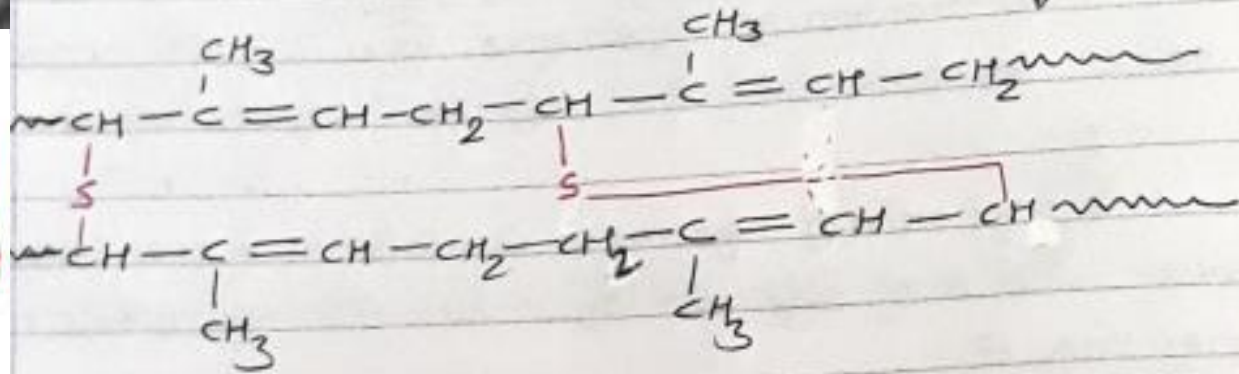 CH3 CH3
CH — C = CH — CH2 — CH — C = CH — CH2
S S
CH — C = CH — CH2 — CH2 — C = CH — CH
CH3 CH3